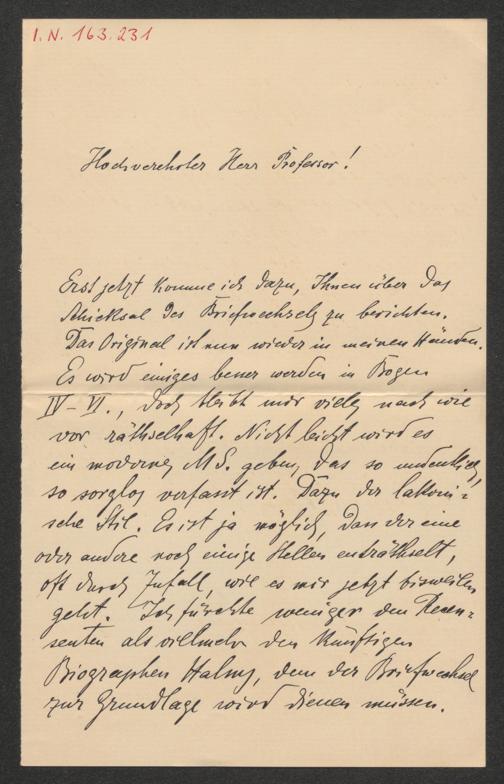 I.N. 163.231
Hochverehrter Herr Professor!
Erst jetzt komme ich dazu, Ihnen über das
Schicksal des Briefwechsels zu berichten.
Das Original ist nun wieder in meinen Händen.
Es wird einiges besser werden in Bogen
IV–VI., doch bleibt mir vieles nach wie
vor räthselhaft. Nicht leicht wird es
ein modernes MS. geben, das so undeutlich,
so sorglos verfasst ist. Dazu der lakoni-
sche Stil. Es ist ja möglich, dass der eine
oder andere noch einige Stellen enträthselt,
oft durch Zufall, wie es mir jetzt bisweilen
geht. Ich fürchte weniger den Recen-
senten als vielmehr den künftigen
Biographen Halms, dem der Briefwechsel
zur Grundlage wird dienen müssen.